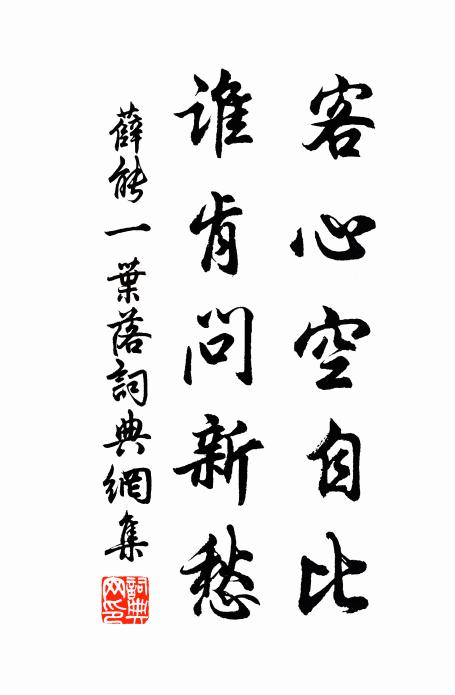 客心空自比
誰肯問新愁
薛能一葉落詞典網集
詞典網印